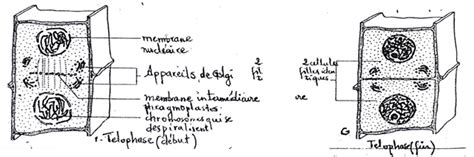 membrane
nucléaire
Appareils de Golgi
membrane intermédiaire
phragmoplastes
chromosomes qui se
despiralisent
Télophase (début)
2
2 cellules
filles iden
tiques
G
Télophase (fin)